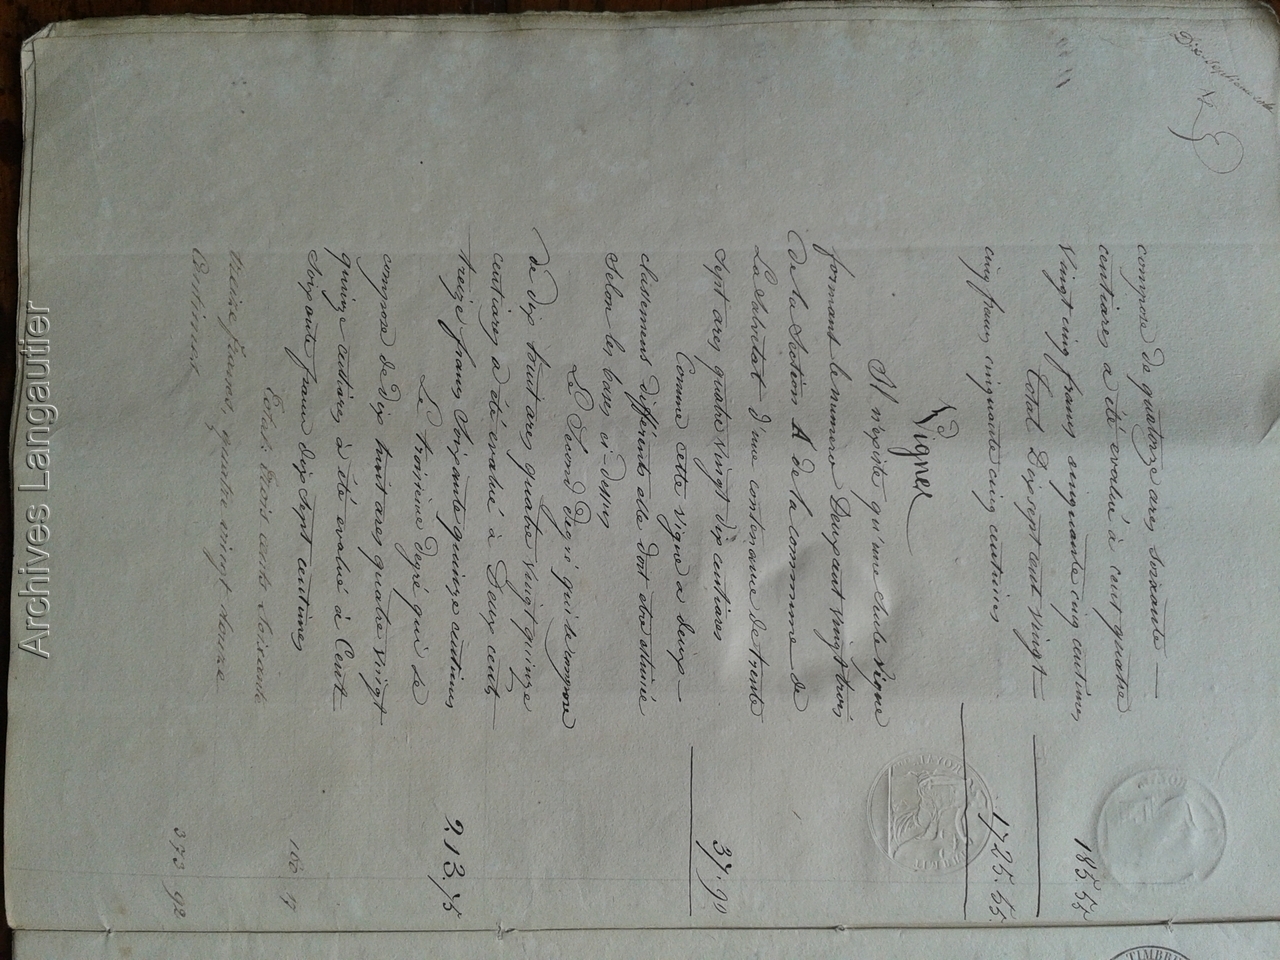 Dix septieme role
compose de quatorze ares soixante —
centiares a été evalué à cent quatre
Vingt cinq francs cinquante cinq centimes 185. 55
Total Dix sept cent Vingt —
cinq francs cinquante cinq centimes 1725. 55
Vignes
Il n'existe qu'une seule Vigne
formant le numero Deux cent vingt trois
de la Section A de la commune de
La Salvetat d'une contenance de trente
Sept ares quatre Vingt dix centiares 37. 90
Comme cette Vigne a deux —
classemens differents elle doit etre estimée
Selon les bases ci dessus
Le Second degré qui se compose
de dix huit ares quatre Vingt quinze
centiares a été evalué à Deux cent
treize francs Soixante quinze centimes 213. 75
Le troisieme degré qui se
compose de dix huit ares quatre vingt
quinze centiares à été evalué à Cent
Soixante francs dix sept centimes 160. 17
Total: trois cents soixante
treize francs, quatre vingt douze 373 92
Centimes
ROYAL
TIMBRE
Archives Langautier